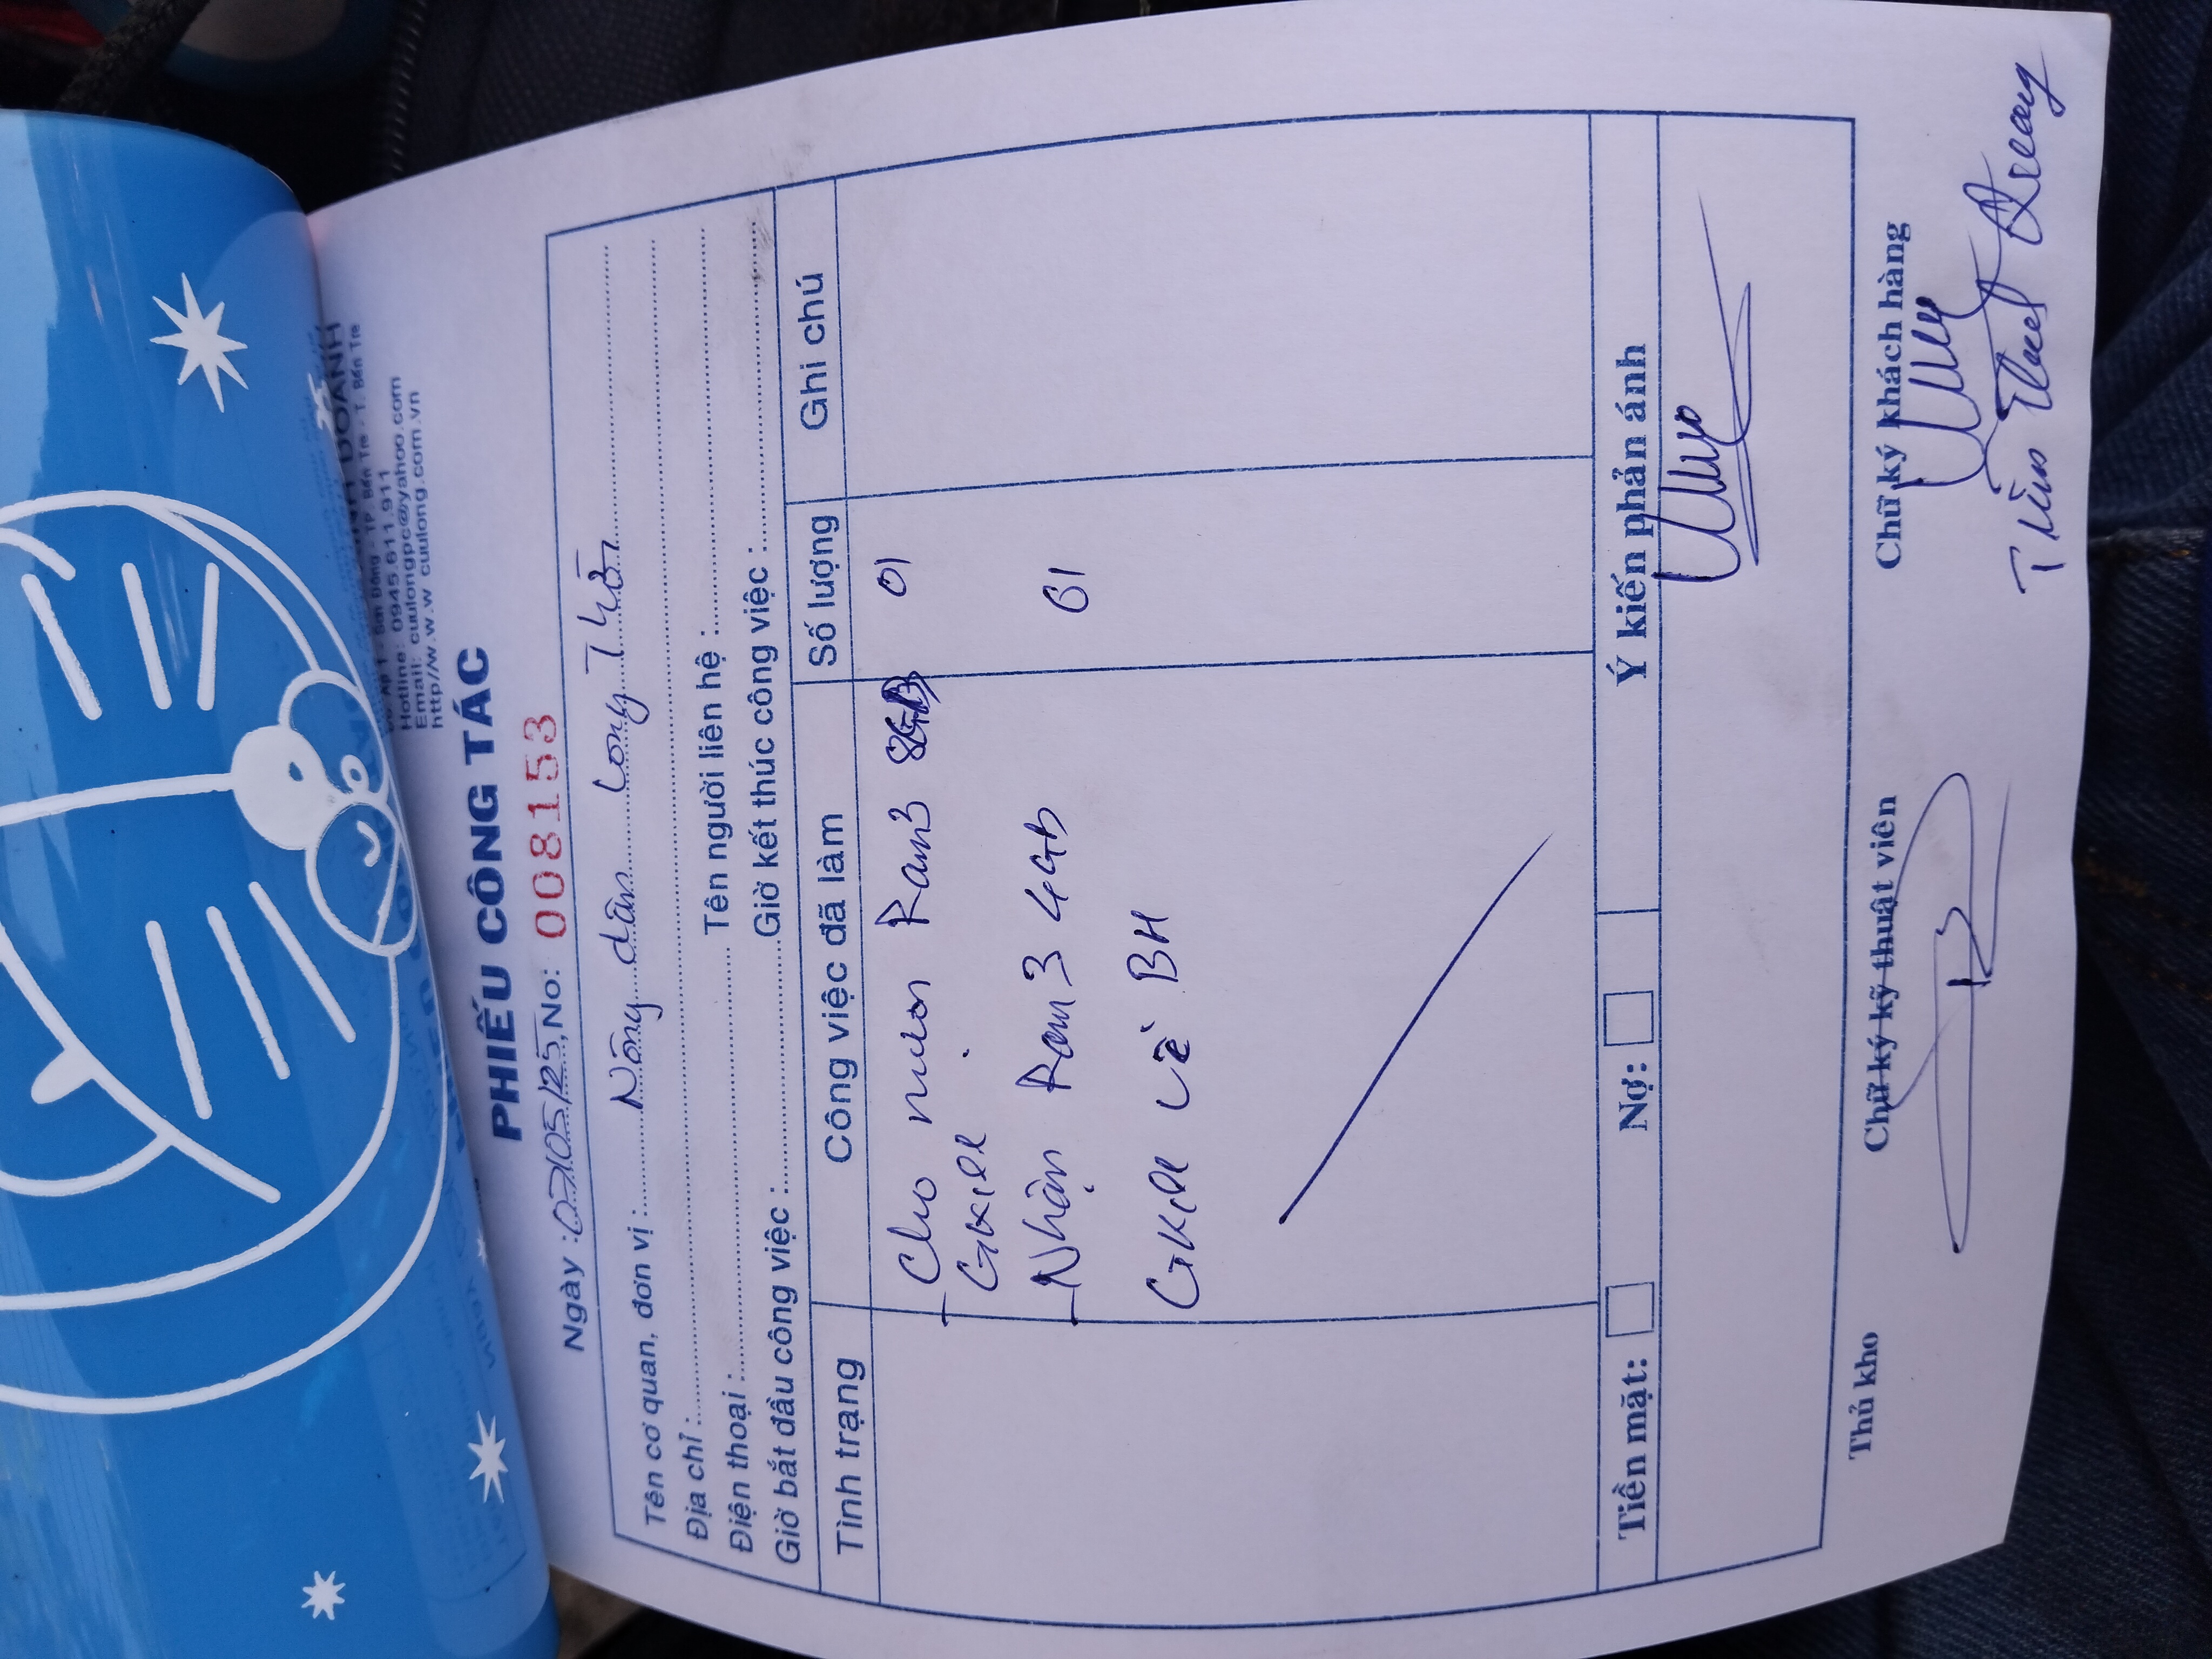 NH DOANH
Ấp 1 - Sơn Đông - TP. Bến Tre - T. Bến Tre
Hotline: 0945.611.911
Email: cuulongpc@yahoo.com
http//w.w.w cuulong.com.vn
PHIẾU CÔNG TÁC
Ngày : 07/05/25, No: 008153
Tên cơ quan, đơn vị : Nông dân Long Thới
Địa chỉ :
Điện thoại : Tên người liên hệ :
Giờ bắt đầu công việc : Giờ kết thúc công việc :
Tình trạng Công việc đã làm Số lượng Ghi chú
Cho mượn Ram3 8GB 01
Gkill
Nhận Ram3 4Gb 01
Gkill về BH
Tiền mặt: Nợ: Ý kiến phản ánh
Thủ kho Chữ ký kỹ thuật viên Chữ ký khách hàng